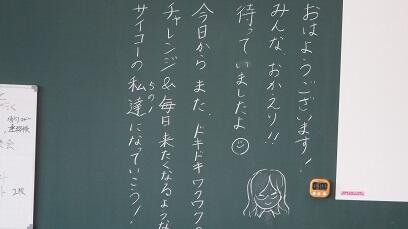 おはようございます！
みんな、おかえり!!
待っていましたよ
今日から また、ドキドキワクワクの
チャレンジ＆毎日来たくなるような
サイコーの私達になっていこう！
5の1
2枚